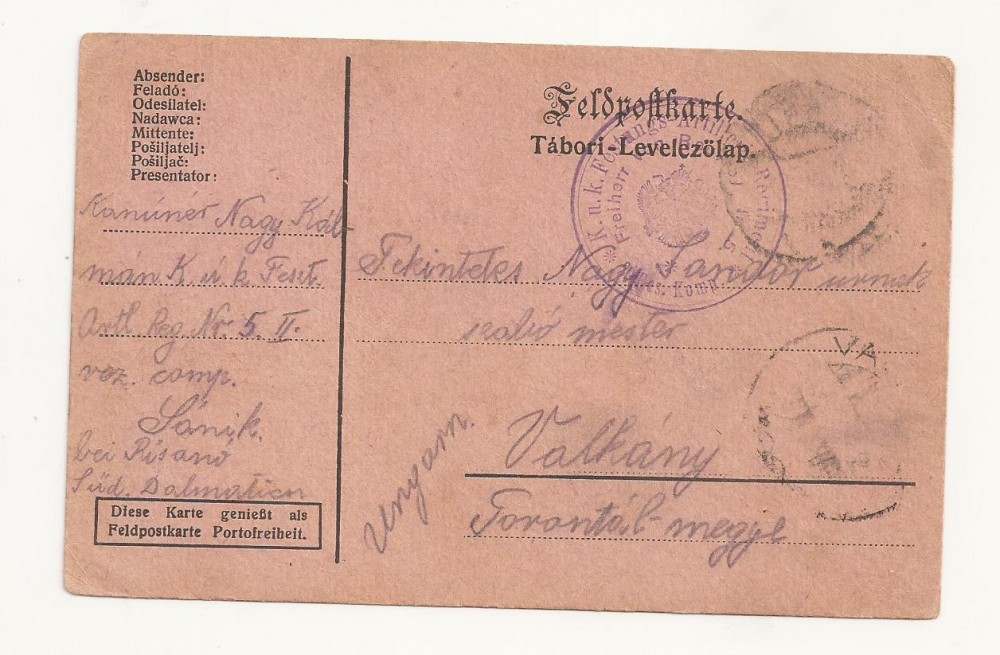 Absender:
Feladó:
Odesilatel:
Nadawca:
Mittente:
Pošiljatelj:
Pošiljač:
Presentator:
Kanúner Nagy Kál-
mán K. ú k. Fest.
Artl Reg Nr. 5. II.
voz. comp.
Sánik.
bei Risanó
Süd. Dalmatien
Diese Karte genießt als
Feldpostkarte Portofreiheit.
Feldpostkarte.
Tábori-Levelezőlap.
K. u. k. Festungs-Artillerie Regiment
Freiherr von
Nr. 5
Komp.
Tekintetes Nagy Sándor urnak
szabó mester
Ungarn.
Valkány
Torontál-megye
VA